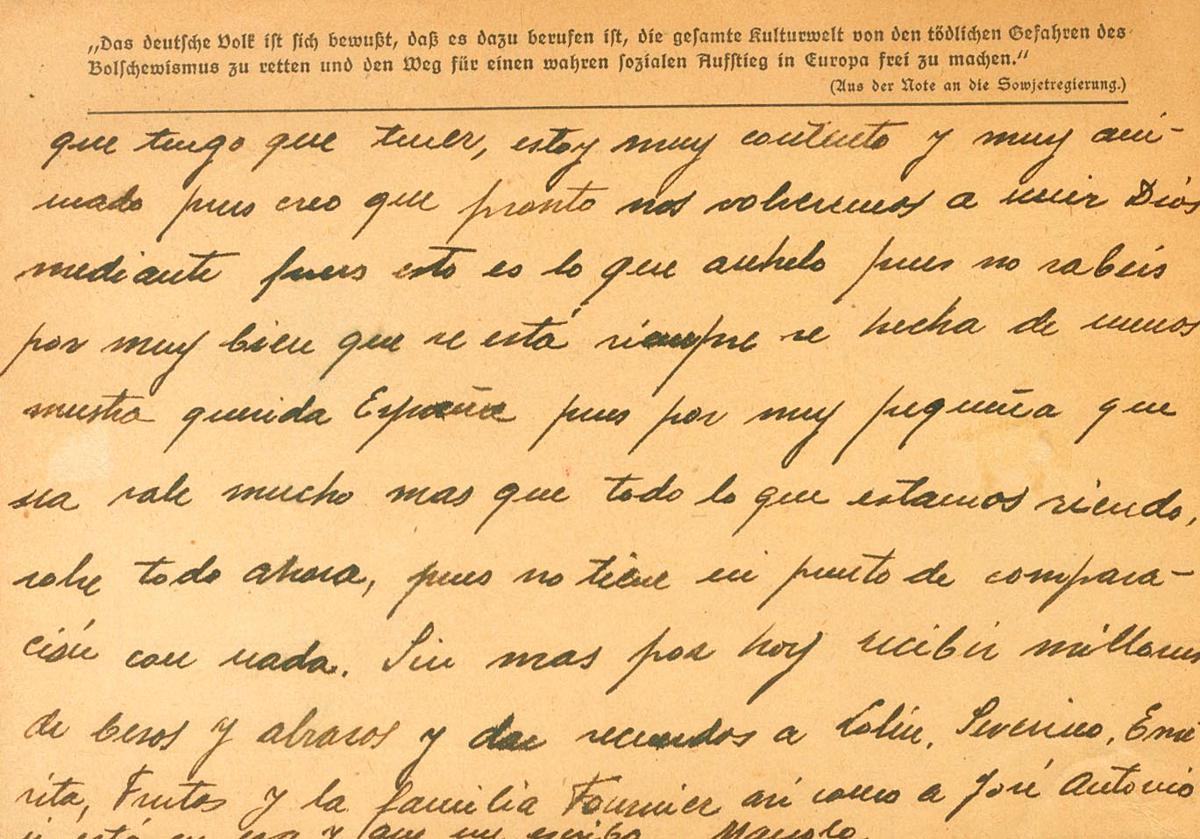 „Das deutsche Volk ist sich bewußt, daß es dazu berufen ist, die gesamte Kulturwelt von den tödlichen Gefahren des
Bolschewismus zu retten und den Weg für einen wahren sozialen Aufstieg in Europa frei zu machen.“
(Aus der Note an die Sowjetregierung.)
que tengo que tener, estoy muy contento y muy ani-
mado pues creo que pronto nos volveremos a unir Dios
mediante pues esto es lo que anhelo pues no sabéis
por muy bien que se está siempre se hecha de menos
nuestra querida España pues por muy pequeña que
sea vale mucho mas que todo lo que estamos viendo,
sobre todo ahora, pues no tiene ni punto de compara-
ción con nada. Sin mas por hoy recibir millones
de besos y abrasos y dar recuerdos a Lolín, Severino, Eme
rita, Frutos y la familia Fournier asi como a José Antonio
si está en esa y que me escriba. Manolo.